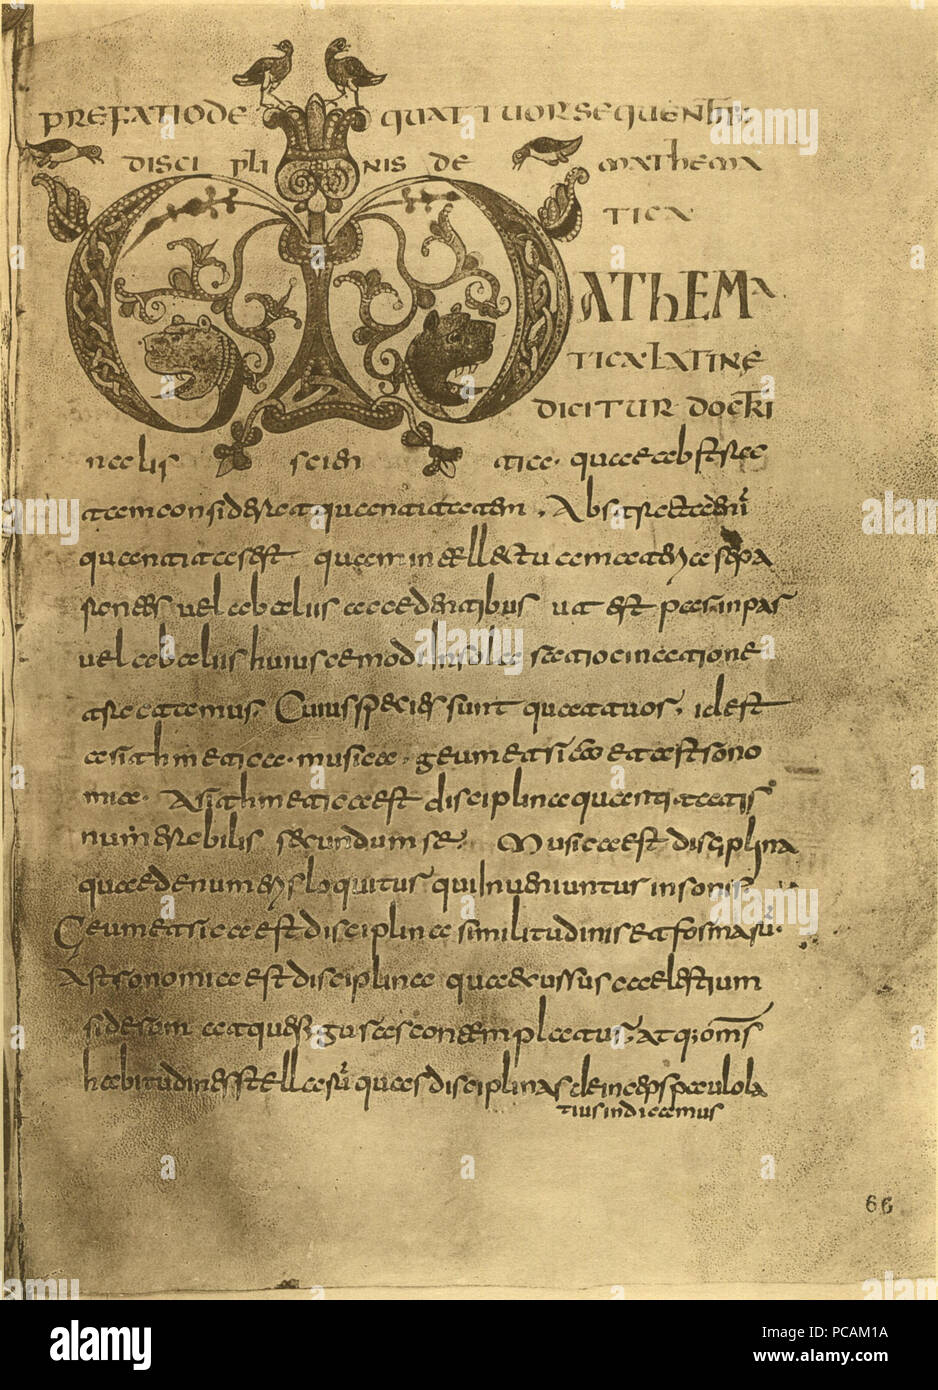 PREFATIO DE QUATTUOR SEQUENTIB;
DISCIPLINIS DE MATHEMA
TICA
MATHEMA
TICA LATINE
DICITUR DOCTRI
nalis scientiae. quae abstrac
tam considerat quantitatem. Abstracta enī
quantitas est quam intellectu a materia sepa
rantes vel ab aliis accidentibus ut est par inpar
vel ab aliis huiuscemodi in sola ratiocinatione
tractamus. Cuius species sunt quattuor. id est
arithmetica. musica. geumetrica et astrono
mica. Arithmetica est disciplina quantitatis
numerabilis secundum se. Musica est disciplina
quae de numeris loquitur qui inveniuntur in sonis
Geumetrica est disciplina similitudinis et formarū.
Astronomica est disciplina quae cursus caelestium
siderum atque figuras contemplatur, atq; oms
habitudines stellarū quas disciplinas deinceps paulo la
tius indicemus
66
alamy
alamy
Image ID: PCAM1A
www.alamy.com